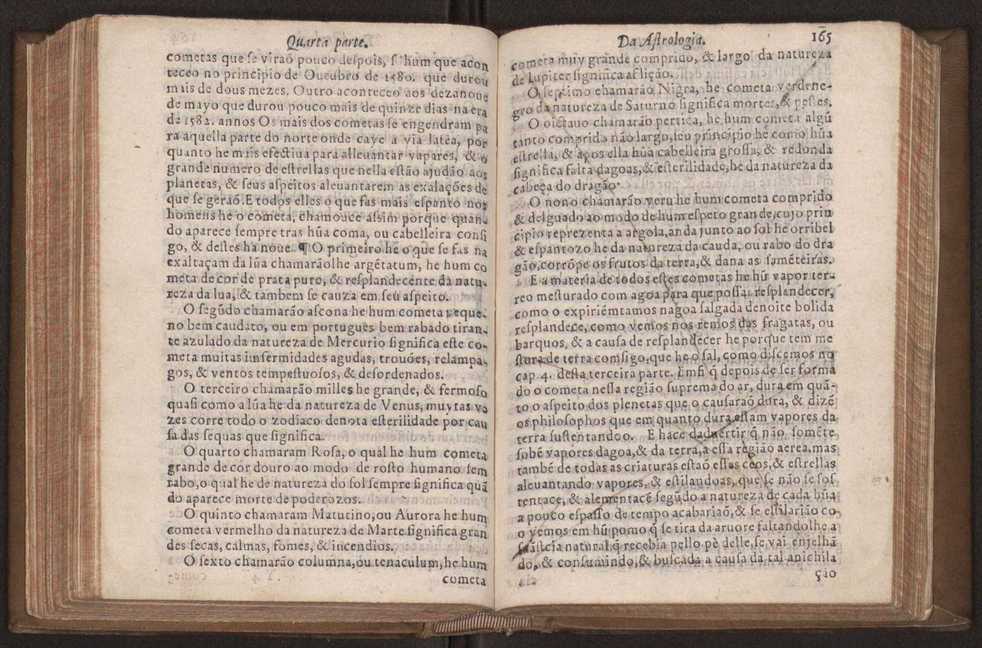 Quarta parte.
cometas que se viraõ pouco despois, s. hum que acon
teceo no principio de Outubro de 1580. que durou
mais de dous mezes. Outro aconteceo aos dezanoue
de mayo que durou pouco mais de quinze dias na era
de 1582. annos Os mais dos cometas se engendram pa
ra aquella parte do norte onde caye a via latea, por
quanto he mais efectiua para alleuantar vapares, & o
grande numero de estrellas que nella estão ajudão aos
planetas, & seus aspeitos aleuantarem as exalações de
que se geraõ. E todos elles o que fas mais espanto nos
homens he o cometa, chamouce assim porque quan-
do aparece sempre tras hũa coma, ou cabelleira consi
go, & destes ha noue. ¶ O primeiro he o que se fas na
exaltaçam da lũa chamarãolhe argẽtatum, he hum co
meta de cor de prata puro, & resplandecente da natu-
reza da lua, & tambem se cauza em seu aspeito.
O segũdo chamarão ascona he hum cometa peque
no bem caudato, ou em portuguès bem rabado tiran-
te azulado da natureza de Mercurio significa este co-
meta muitas infermidades agudas, trouões, relampa-
gos, & ventos tempestuosos, & desordenados.
O terceiro chamarão milles he grande, & fermoso
quasi como a lũa he da natureza de Venus, muytas ve
zes corre todo o zodiaco denota esterilidade por cau
sa das sequas que significa.
O quarto chamaram Rosa, o quàl he hum cometa
grande de cor douro ao modo de rosto humano sem
rabo, o qual he de natureza do sol sempre significa quã
do aparece morte de poderozos.
O quinto chamaram Matutino, ou Aurora he hum
cometa vermelho da natureza de Marte significa gran
des secas, calmas, fomes, & incendios.
O sexto chamarão columna, ou tenaculum, he hum
cometa
Da Astrologia. 165
cometa muy grande comprido, & largo da natureza
de Iupiter significa aflição.
O septimo chamarão Nigra, he cometa verdene-
gro da natureza de Saturno significa mortes, & pestes.
O oictauo chamarão pertica, he hum cometa algũ
tanto comprido não largo, seu principio he como hũa
estrella, & apos ella hũa cabelleira grossa, & redonda
significa falta dagoas, & esterilidade, he da natureza da
cabeça do dragão.
O nono chamarão veru he hum cometa comprido
& delguado ao modo de hum espeto grande, cujo prin
cipio reprezenta a argola, anda junto ao sol he orribel
& espantozo he da natureza da cauda, ou rabo do dra
gão, corrõpe os frutos da terra, & dana as semẽteiras.
E a materia de todos estes cometas he hũ vapor ter-
reo mesturado com agoa para que possa resplandecer,
como o expiriẽmtamos nagoa salgada denoite bolida
resplandece, como vemos nos remos das fragatas, ou
barquos, & a causa de resplandecer he porque tem me
stura de terra comsigo, que he o sal, como discemos no
cap. 4. desta terceira parte. Emfi q̃ depois de ser forma
do o cometa nesta região suprema do ar, dura em quã-
to o aspeito dos plenetas que o causaraõ dura, & dizẽ
os philosophos que em quanto dura estam vapores da
terra sustentandoo. E hace daduertir q̃ não somẽte
sobẽ vapores dagoa, & da terra, a essa região aerea, mas
tambẽ de todas as criaturas estaõ esses ceos, & estrellas
aleuantando vapores, & estilandoas, que se não se sos
tentace, & alementacẽ segũdo a natureza de cada hũa
a pouco espasso de tempo acabariaõ, & se estilarião co-
o yemos em hũ pomo q̃ se tira da aruore faltandolhe a
sustãcia natural q̃ recebia pello pè delle, se vai enjelhã
do, & consumindo, & buscada a causa da tal anichila
ção